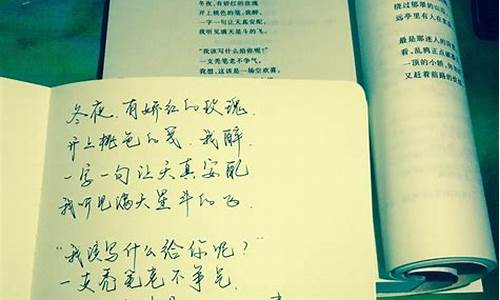 冬夜,有娇红的玫瑰
开上桃色的笺,我醉,
一字一句让天真安配,
我听见满天星斗的飞。
"我该写什么给你呢?"
一支秃笔老不争气,
我想,这该是一场空欢喜,
绕过郁郁的山
远亭里有人在
最是那迷人的
看,乱鸦正点
一顶的小轿,
又赶着前路的
冬夜,有娇红的玫瑰,
开上桃色的笺,我醉,
一字一句让天真安配
我听见满天星斗的飞.
"我该写什么给你呢?"
一支秃笔老不争气.